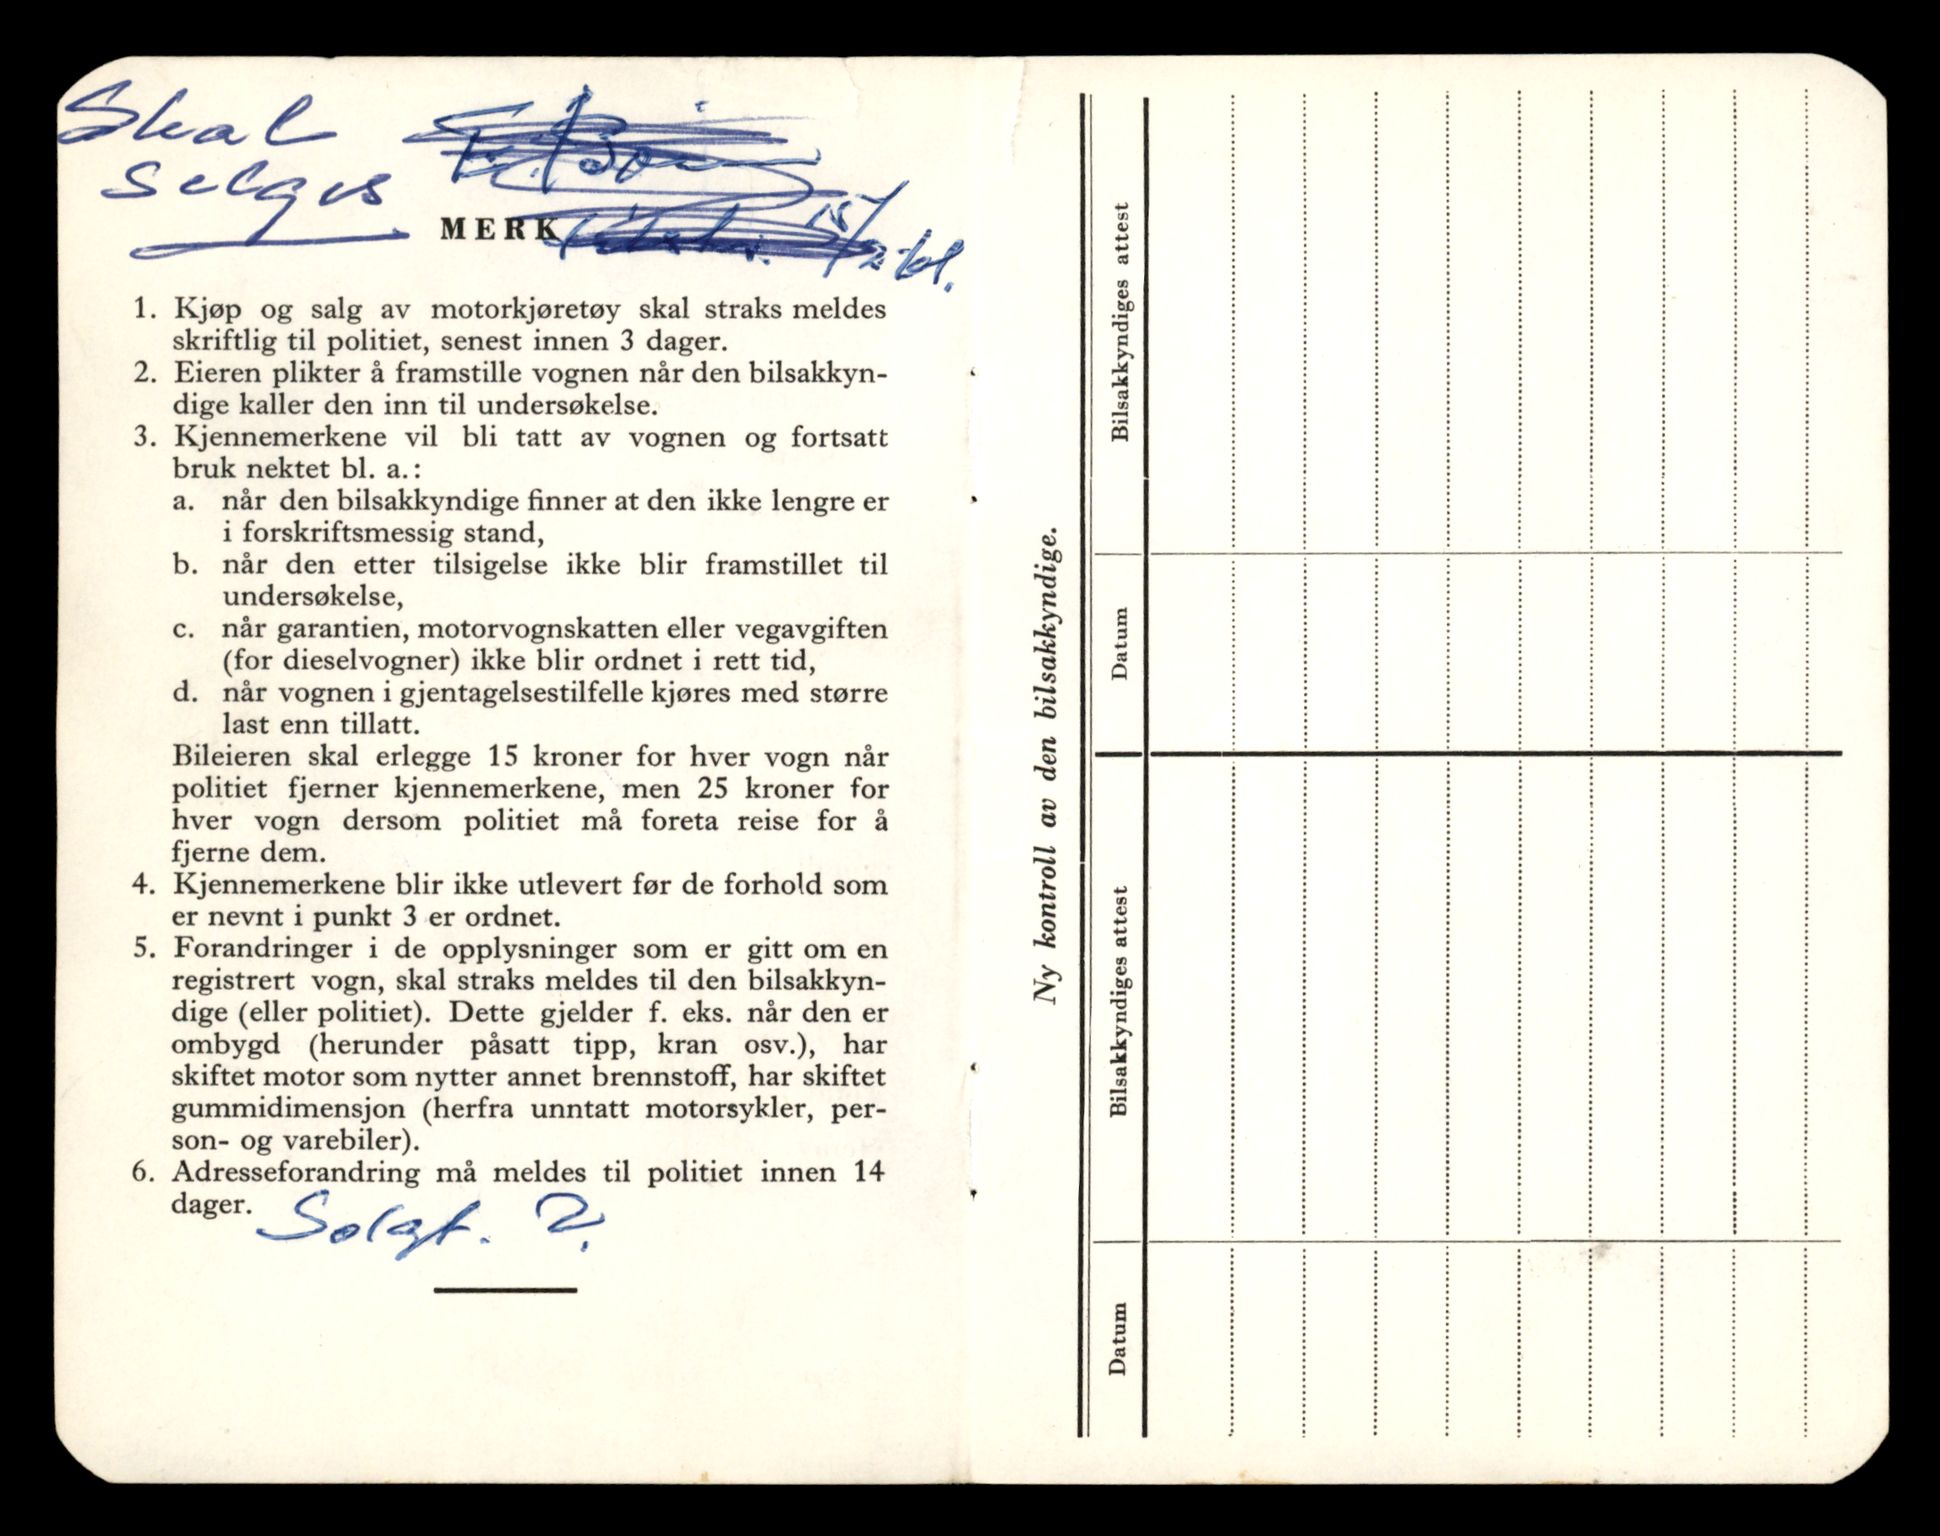 Skal
selges
MERK
15/2-61.
1. Kjøp og salg av motorkjøretøy skal straks meldes
skriftlig til politiet, senest innen 3 dager.
2. Eieren plikter å framstille vognen når den bilsakkyn-
dige kaller den inn til undersøkelse.
3. Kjennemerkene vil bli tatt av vognen og fortsatt
bruk nektet bl. a.:
a. når den bilsakkyndige finner at den ikke lengre er
i forskriftsmessig stand,
b. når den etter tilsigelse ikke blir framstillet til
undersøkelse,
c. når garantien, motorvognskatten eller vegavgiften
(for dieselvogner) ikke blir ordnet i rett tid,
d. når vognen i gjentagelsestilfelle kjøres med større
last enn tillatt.
Bileieren skal erlegge 15 kroner for hver vogn når
politiet fjerner kjennemerkene, men 25 kroner for
hver vogn dersom politiet må foreta reise for å
fjerne dem.
4. Kjennemerkene blir ikke utlevert før de forhold som
er nevnt i punkt 3 er ordnet.
5. Forandringer i de opplysninger som er gitt om en
registrert vogn, skal straks meldes til den bilsakkyn-
dige (eller politiet). Dette gjelder f. eks. når den er
ombygd (herunder påsatt tipp, kran osv.), har
skiftet motor som nytter annet brennstoff, har skiftet
gummidimensjon (herfra unntatt motorsykler, per-
son- og varebiler).
6. Adresseforandring må meldes til politiet innen 14
dager.
Solgt. ?
Ny kontroll av den bilsakkyndige.
Datum
Bilsakkyndiges attest
Datum
Bilsakkyndiges attest